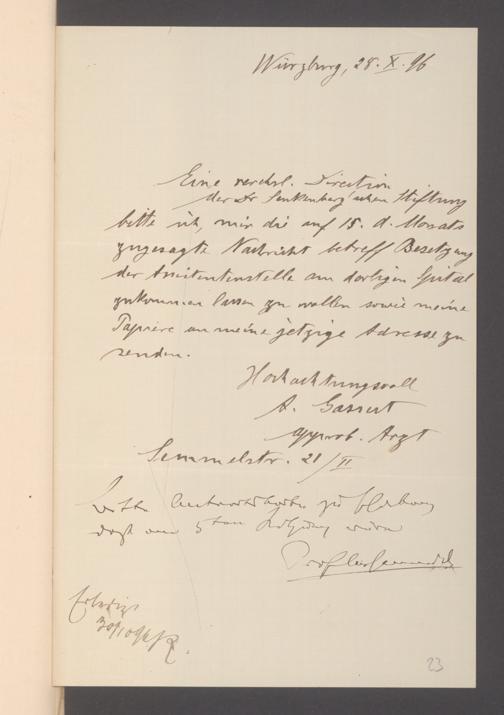 Würzburg, 28. X. 96
Eine verehrl. Direction
der Dr Senkenberg'schen Stiftung
bitte ich, mir die auf 15. d. Monats
zugesagte Nachricht betreff Besetzung
der Assistentenstelle am dortigen Spital
zukommen lassen zu wollen sowie meine
Papiere an meine jetzige Adresse zu
senden.
Hochachtungsvoll
A. Gassert
approb. Arzt
Semmelstr. 21/II
zu
5ten
Prof
Erledigt
30/10 96
23